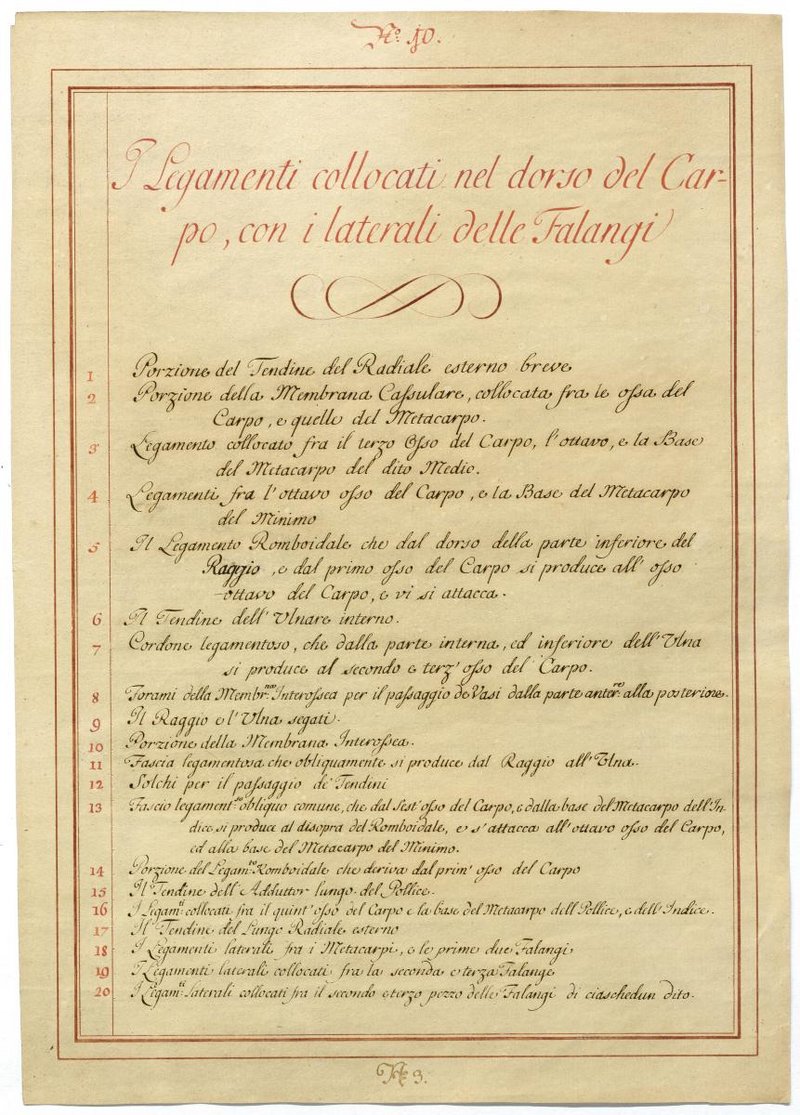 N.º 10.
I Legamenti collocati nel dorso del Car-
po, con i laterali delle Falangi
1 Porzione del Tendine del Radiale esterno breve
2 Porzione della Membrana Cassulare, collocata fra le ossa del
Carpo, e quelle del Metacarpo.
3 Legamento collocato fra il terzo Osso del Carpo, l'ottavo, e la Base
del Metacarpo del dito Medio.
4 Legamenti fra l'ottavo osso del Carpo, e la Base del Metacarpo
del Minimo
5 Il Legamento Romboidale che dal dorso della parte inferiore del
Raggio, e dal primo osso del Carpo si produce all' osso
ottavo del Carpo, e vi si attacca.
6 Il Tendine dell' Ulnare interno.
7 Cordone legamentoso, che dalla parte interna, ed inferiore dell' Ulna
si produce al secondo e terz' osso del Carpo.
8 Forami della Membr.na Interossea per il passaggio de Vasi dalla parte anter.re alla posteriore.
9 Il Raggio e l' Ulna segati.
10 Porzione della Membrana Interossea.
11 Fascia legamentosa che obliquamente si produce dal Raggio all' Ulna.
12 Solchi per il passaggio de' Tendini
13 Fascio legament.so obliquo comune, che dal sest' osso del Carpo, e dalla base del Metacarpo dell' In-
dice si produce al disopra del Romboidale, e s' attacca all' ottavo osso del Carpo,
ed alla base del Metacarpo del Minimo.
14 Porzione del Legam.to Romboidale che deriva dal prim' osso del Carpo
15 Il Tendine dell' Adduttor lungo del Pollice.
16 I Legam.ti collocati fra il quint' osso del Carpo e la base del Metacarpo dell Pollice, e dell' Indice.
17 Il Tendine del Lungo Radiale esterno
18 I Legamenti laterali fra i Metacarpi, e le prime due Falangi
19 I Legamenti laterali collocati fra la seconda e terza Falange
20 I Legam.ti laterali collocati fra il secondo e terzo pezzo delle Falangi di ciaschedun dito.